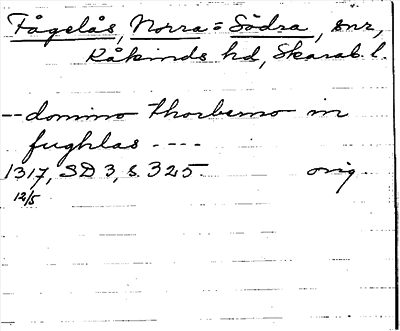 Fågelås, Norra = Södra, snr,
Kåkinds hd, Skarab. l.
-- domino thorberno in
fughlas ----
1317, SD 3, s. 325 orig.
12/5